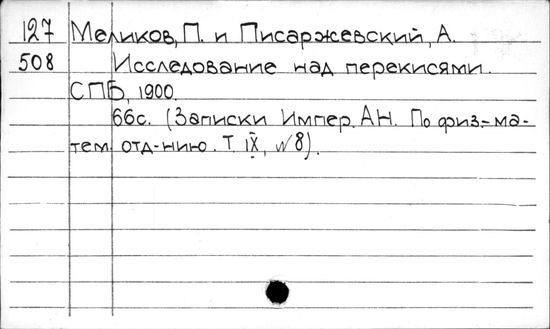 127 Меликов, П. и Писаржевский, А.
508 Исследование над перекисями.
СПБ, 1900.
66с. (Записки Импер. АН. По физ.-ма-
тем. отд-нию. Т. IX, №8).